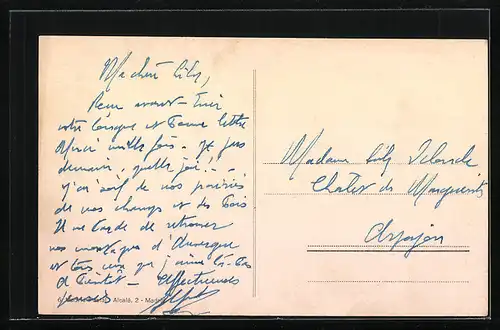 Ma chère Lily,
votre longue et bonne lettre
Merci mille fois. Je pars
demain, quelle joie! - -
j'ai soif de nos prairies
de nos champs et des bois
Il me tarde de retrouver
nos montagnes d'Auvergne
et tous ceux que j'aime là-bas
à bientôt - Affectueuses
pensées
Alcalá, 2 - Mad
Madame Lily
Chalet des Marguerites
Arpajon